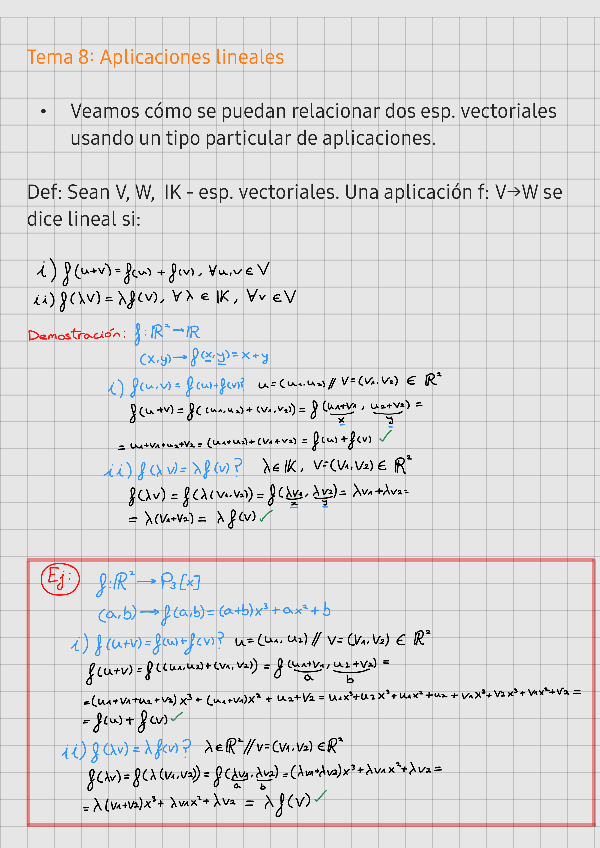 Tema 8: Aplicaciones lineales
• Veamos cómo se puedan relacionar dos esp. vectoriales
usando un tipo particular de aplicaciones.
Def: Sean V, W, IK - esp. vectoriales. Una aplicación f: V→W se
dice lineal si:
i) f(u+v) = f(u) + f(v), ∀u,v ∈ V
ii) f(λv) = λf(v), ∀λ ∈ IK, ∀v ∈ V
Demostración: f: ℝ² → ℝ
(x,y) → f(x,y) = x+y
i) f(u,v) = f(u)+f(v)? u=(u1,u2) // v=(v1,v2) ∈ ℝ²
f(u+v) = f((u1,u2)+(v1,v2)) = f(u1+v1, u2+v2) =
x y
= u1+v1+u2+v2 = (u1+u2)+(v1+v2) = f(u)+f(v) ✓
ii) f(λv) = λf(v)? λ∈IK, v=(v1,v2) ∈ ℝ²
f(λv) = f(λ(v1,v2)) = f(λv1, λv2) = λv1+λv2 =
x y
= λ(v1+v2) = λ f(v) ✓
Ej: f: ℝ² → P3[x]
(a,b) → f(a,b) = (a+b)x³ + ax² + b
i) f(u+v) = f(u)+f(v)? u=(u1,u2) // v=(v1,v2) ∈ ℝ²
f(u+v) = f((u1,u2)+(v1,v2)) = f(u1+v1, u2+v2) =
a b
= (u1+v1+u2+v2)x³ + (u1+v1)x² + u2+v2 = u1x³+u2x³+u1x²+u2 + v1x³+v2x³+v1x²+v2 =
= f(u) + f(v) ✓
ii) f(λv) = λf(v)? λ∈ℝ² // v=(v1,v2) ∈ℝ²
f(λv) = f(λ(v1,v2)) = f(λv1, λv2) = (λv1+λv2)x³+λv1x²+λv2 =
a b
= λ(v1+v2)x³ + λv1x² + λv2 = λ f(v) ✓